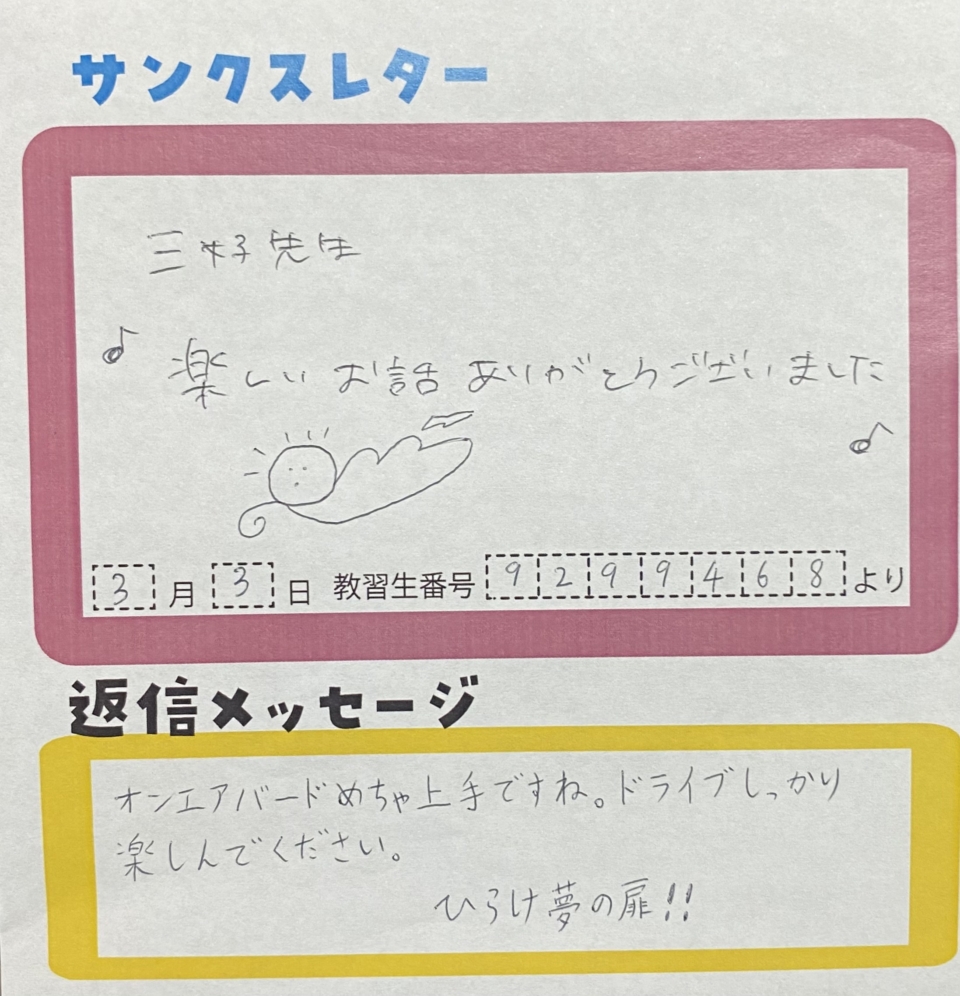 サンクスレター
三好先生
楽しい お話 ありがとうございました
3月3日 教習生番号 9299468より
返信メッセージ
オンエアバードめちゃ上手ですね。ドライブしっかり
楽しんでください。
ひらけ夢の扉!!